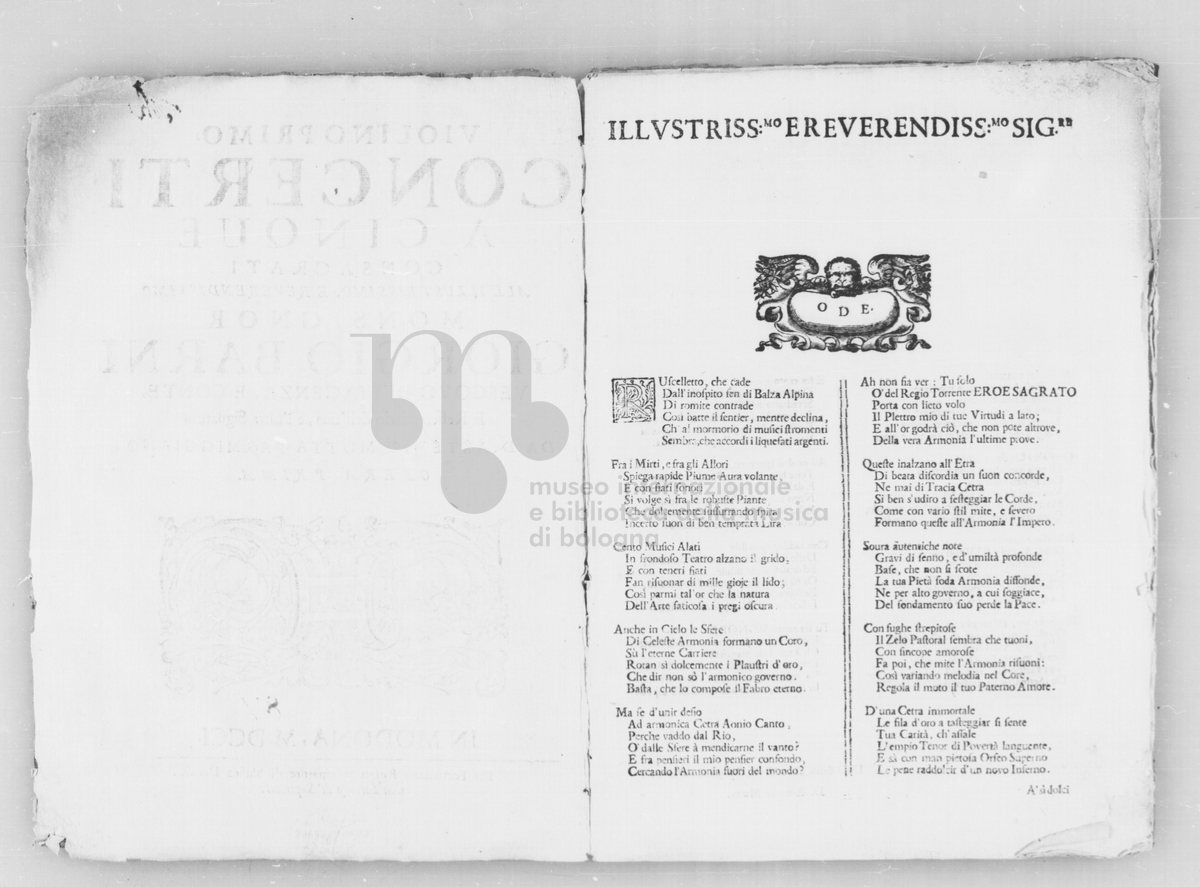 VIOLINO PRIMO
CONCERTI
A CINQUE
CONSAGRATI
MONSIGNOR
GIORGIO BARNI
IN MODONA, M DC
ILLVSTRISS:MO E REVERENDISS:MO SIG.RE
ODE.
RUscelletto, che cade
Dall'inospito sen di Balza Alpina
Di romite contrade
Così batte il sentier, mentre declina,
Ch'al mormorio di musici stromenti
Sembra, che accordi i liquefati argenti.
Fra i Mirti, e fra gli Allori
Spiega rapide Piume Aura volante,
E con fiati sonori
Si volge sì fra le robuste Piante
Che dolcemente sussurrando spira
Incerto suon di ben temprata Lira
Cento Musici Alati
In frondoso Teatro alzano il grido,
E con teneri fiati
Fan risuonar di mille gioje il lido;
Così parmi tal'or che la natura
Dell'Arte faticosa i pregi oscura.
Anche in Cielo le Sfere
Di Celeste Armonia formano un Coro,
Sù l'eterne Carriere
Rotan sì dolcemente i Plaustri d'oro,
Che dir non sò l'armonico governo.
Basta, che lo compose il Fabro eterno.
Ma se d'unir desio
Ad armonica Cetra Aonio Canto,
Perche vaddo dal Rio,
O' dalle Sfere à mendicarne il vanto?
E fra pensieri il mio pensier confondo,
Cercando l'Armonia fuori del mondo?
Ah non fia ver: Tu solo
O' del Regio Torrente EROE SAGRATO
Porta con lieto volo
Il Plettro mio di tue Virtudi a lato;
E all'or godrà ciò, che non pote altrove,
Della vera Armonia l'ultime prove.
Queste inalzano all'Etra
Di beata discordia un suon concorde,
Ne mai di Tracia Cetra
Si ben s'udiro a festeggiar le Corde,
Come con vario stil mite, e severo
Formano queste all'Armonia l'Impero.
Soura autentiche note
Gravi di senno, e d'umiltà profonde
Base, che non si scote
La tua Pietà soda Armonia diffonde,
Ne per alto governo, a cui soggiace,
Del fondamento suo perde la Pace.
Con fughe strepitose
Il Zelo Pastoral sembra che tuoni,
Con sincope amorose
Fa poi, che mite l'Armonia risuoni:
Così variando melodia nel Core,
Regola il moto il tuo Paterno Amore.
D'una Cetra immortale
Le fila d'oro a tasteggiar si sente
Tua Carità, ch'assale
L'empio Tenor di Povertà languente,
E sà con man pietosa Orfeo Superno
Le pene raddolcir d'un novo Inferno.
A' sì dolci
museo internazionale
e biblioteca della musica
di bologna